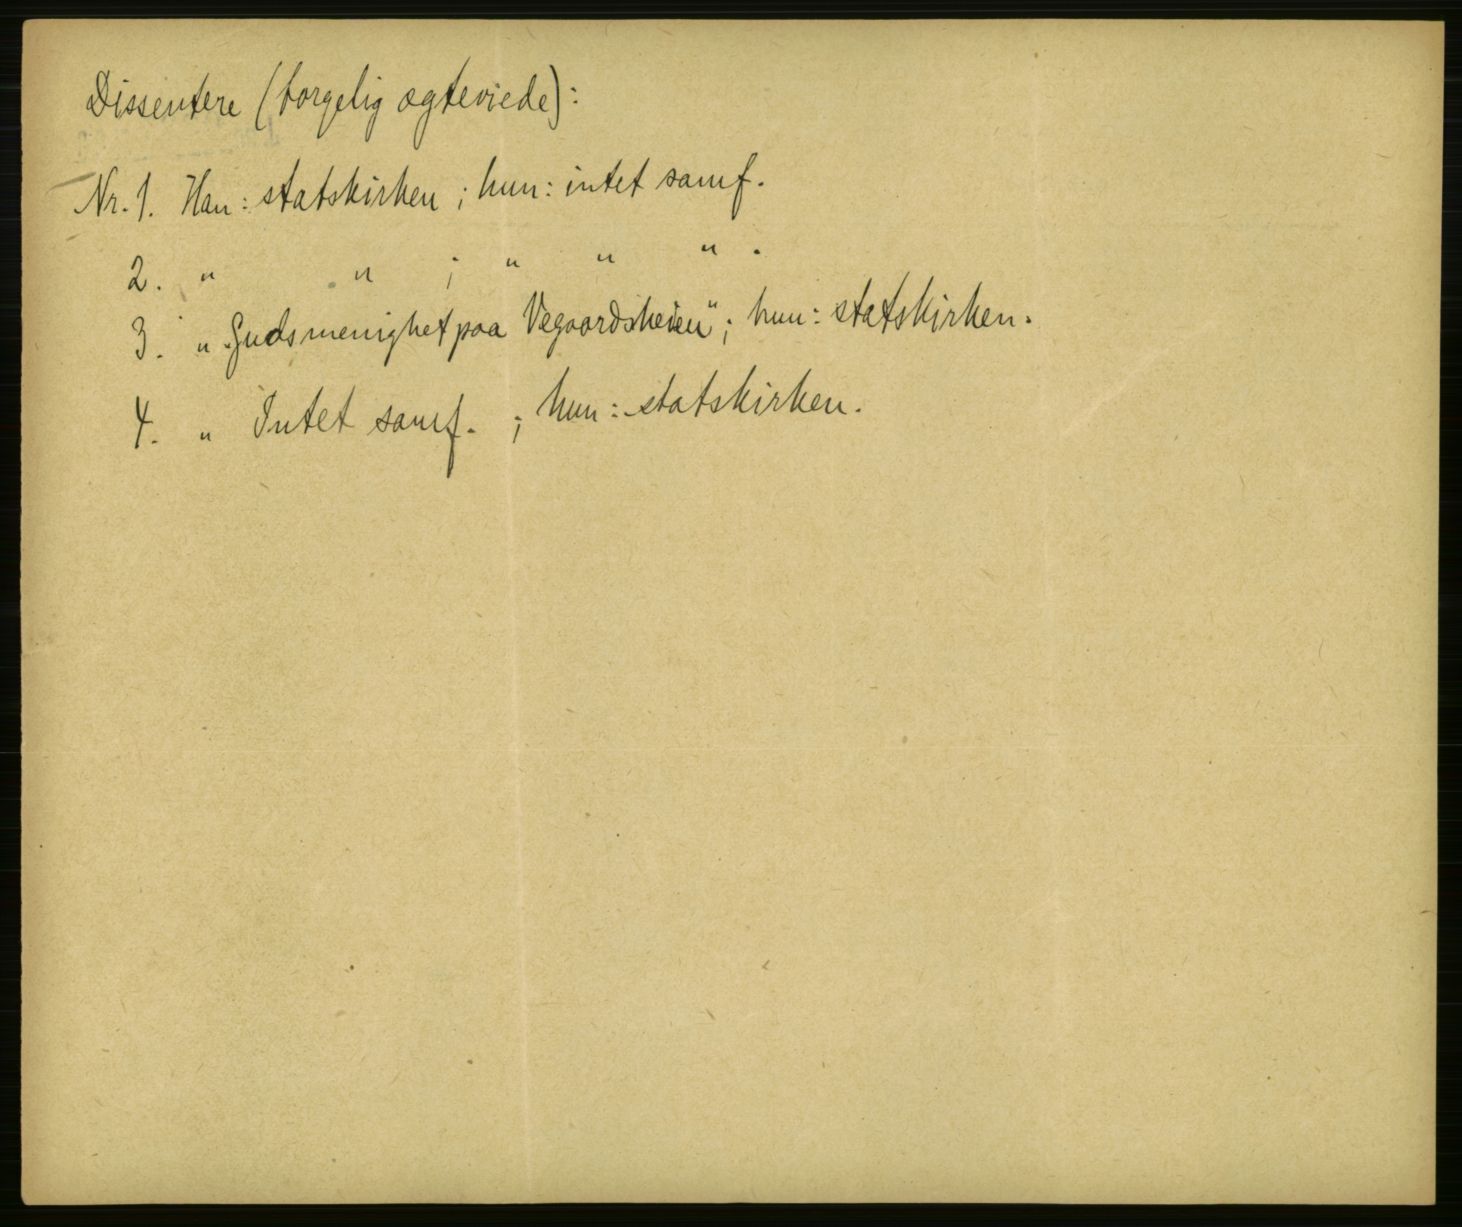 Dissentere (borgelig ægteviede):
Nr. 1. Han: statskirken; hun: intet samf.
2. " " ; " " " .
3. " "Gudsmenighet paa Vegaardsheien"; hun: statskirken.
4. " Intet samf. ; hun: statskirken.